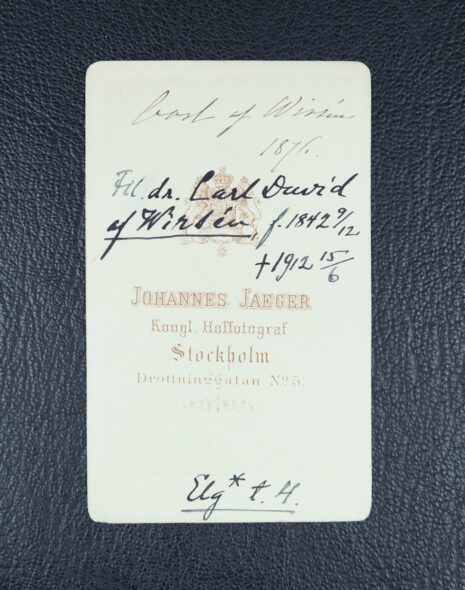 Carl af Wirsén
1876.
Fil. dr. Carl David
af Wirsén, f. 1842 9/12
† 1912 15/6
JOHANNES JAEGER
Kongl. Hoffotograf
Stockholm
Drottninggatan No 5.
Elg* t. H.